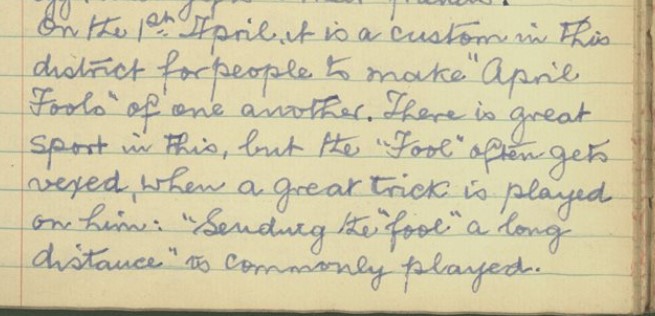 On the 1st April, it is a custom in this
district for people to make "April
Fools" of one another. There is great
sport in this, but the "Fool" often gets
vexed, when a great trick is played
on him: "Sending the "fool" a long
distance" is commonly played.